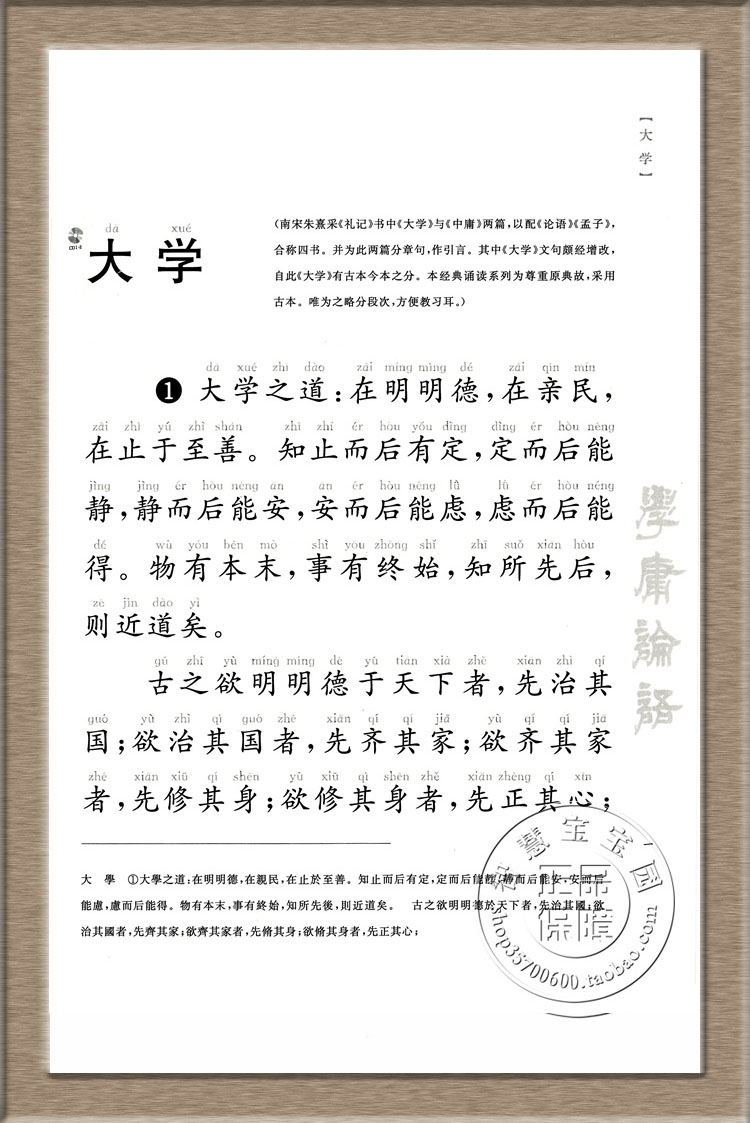 【大学】
CD1-2
dà xué
大学
（南宋朱熹采《礼记》书中《大学》与《中庸》两篇，以配《论语》《孟子》，
合称四书。并为此两篇分章句，作引言。其中《大学》文句颇经增改，
自此《大学》有古本今本之分。本经典诵读系列为尊重原典故，采用
古本。唯为之略分段次，方便教习耳。）
dà xué zhī dào zài míng míng dé zài qīn mín
❶ 大学之道：在明明德，在亲民，
zài zhǐ yú zhì shàn zhī zhǐ ér hòu yǒu dìng dìng ér hòu néng
在止于至善。知止而后有定，定而后能
jìng jìng ér hòu néng ān ān ér hòu néng lǜ lǜ ér hòu néng
静，静而后能安，安而后能虑，虑而后能
dé wù yǒu běn mò shì yǒu zhōng shǐ zhī suǒ xiān hòu
得。物有本末，事有终始，知所先后，
zé jìn dào yǐ
则近道矣。
gǔ zhī yù míng míng dé yú tiān xià zhě xiān zhì qí
古之欲明明德于天下者，先治其
guó yù zhì qí guó zhě xiān qí qí jiā yù qí qí jiā
国；欲治其国者，先齐其家；欲齐其家
zhě xiān xiū qí shēn yù xiū qí shēn zhě xiān zhèng qí xīn
者，先修其身；欲修其身者，先正其心；
學庸論語
大　學　①大學之道：在明明德，在親民，在止於至善。知止而后有定，定而后能靜，靜而后能安，安而后
能慮，慮而后能得。物有本末，事有終始，知所先後，則近道矣。　古之欲明明德於天下者，先治其國；欲
治其國者，先齊其家；欲齊其家者，先脩其身；欲脩其身者，先正其心；
智慧宝宝园
正品
保障
shop35700600.taobao.com